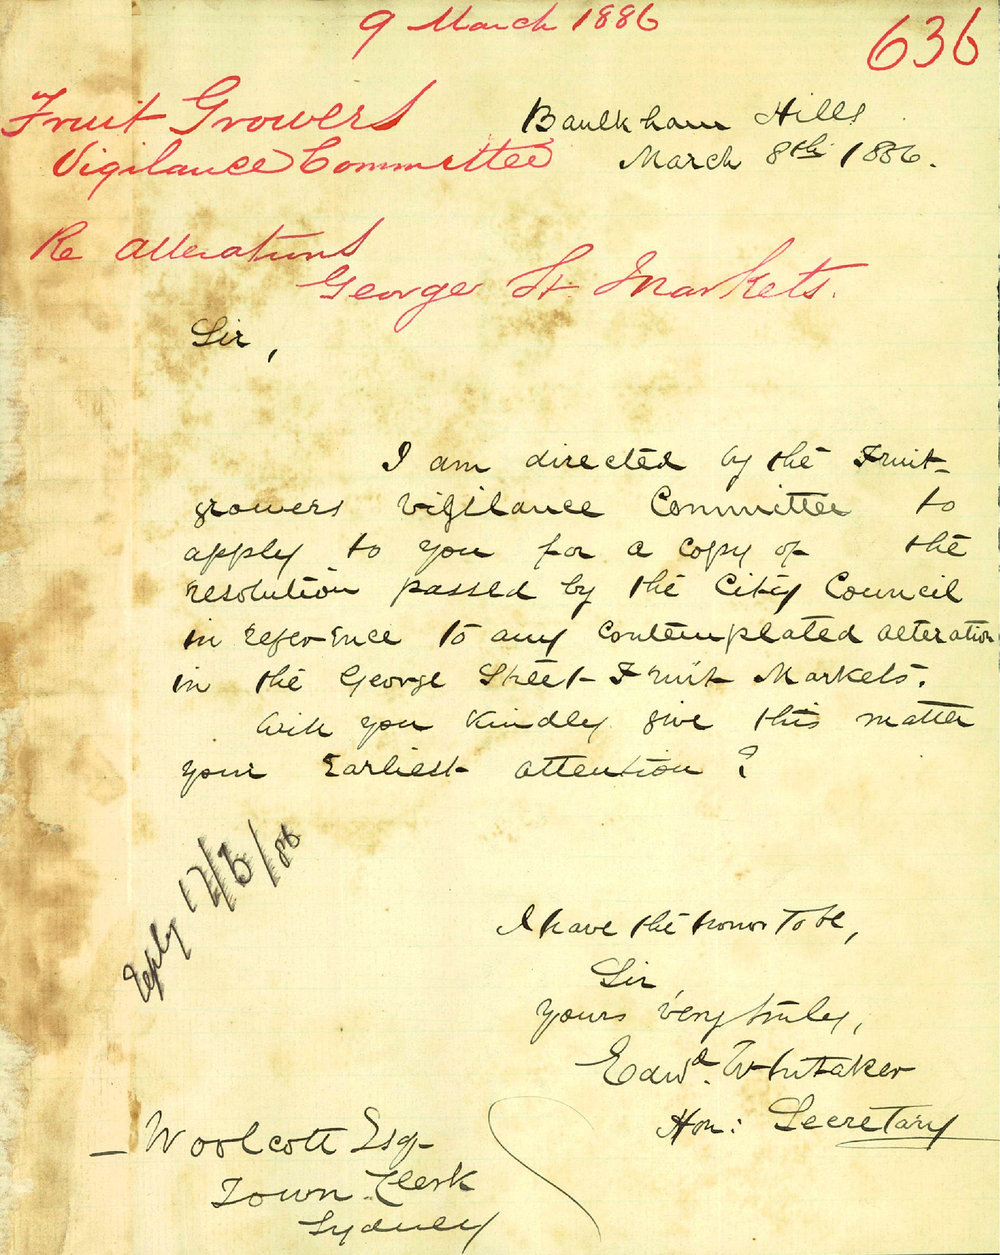 9 March 1886
636
Fruit Growers
Vigilance Committee
Baulkham Hills
March 8th 1886.
Re Alterations
George St. Markets.
Sir,
I am directed by the Fruit-
growers Vigilance Committee to
apply to you for a copy of the
resolution passed by the City Council
in reference to any contemplated alteration
in the George Street Fruit Markets.
Will you kindly give this matter
your Earliest attention?
reply 12/3/86
I have the honor to be,
Sir,
yours very truly,
Edwd. Whitaker
Hon: Secretary
— Woolcott Esq
Town Clerk
Sydney